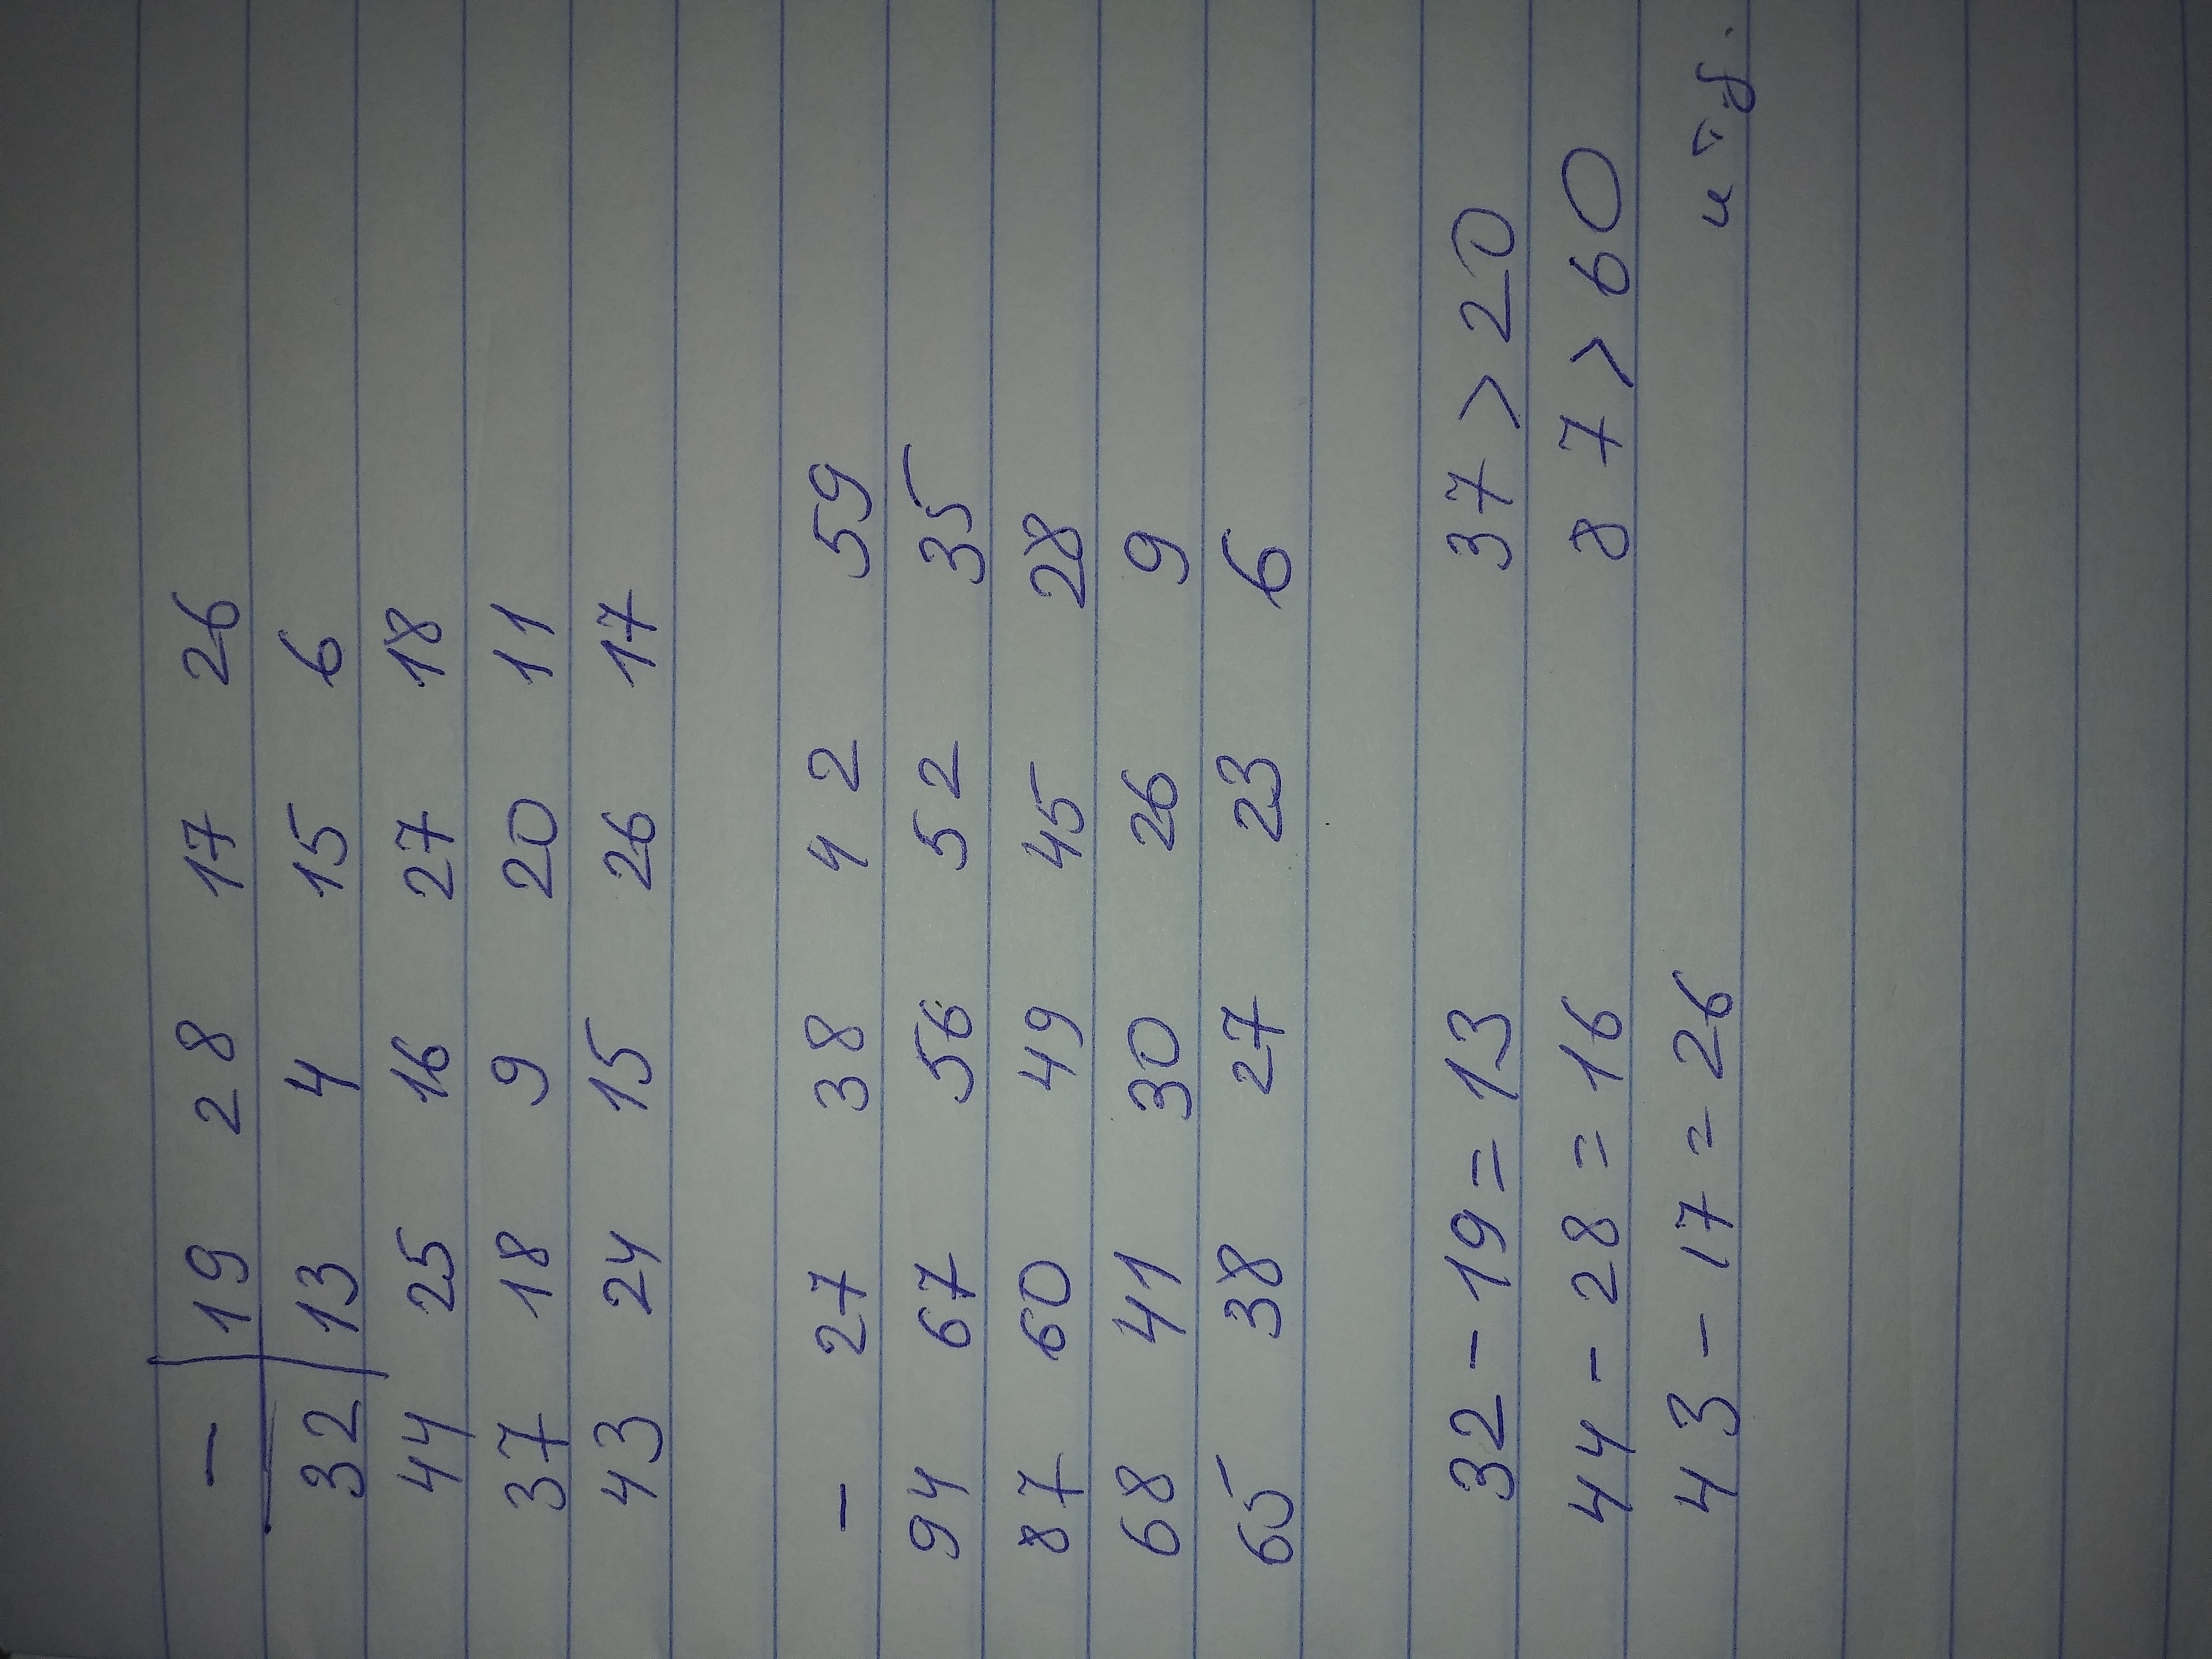 - | 19 28 17 26
32 | 13 4 15 6
44 25 16 27 18
37 18 9 20 11
43 24 15 26 17
- 27 38 42 59
94 67 56 52 35
87 60 49 45 28
68 41 30 26 9
65 38 27 23 6
32 - 19 = 13 37 > 20
44 - 28 = 16 87 > 60
43 - 17 = 26